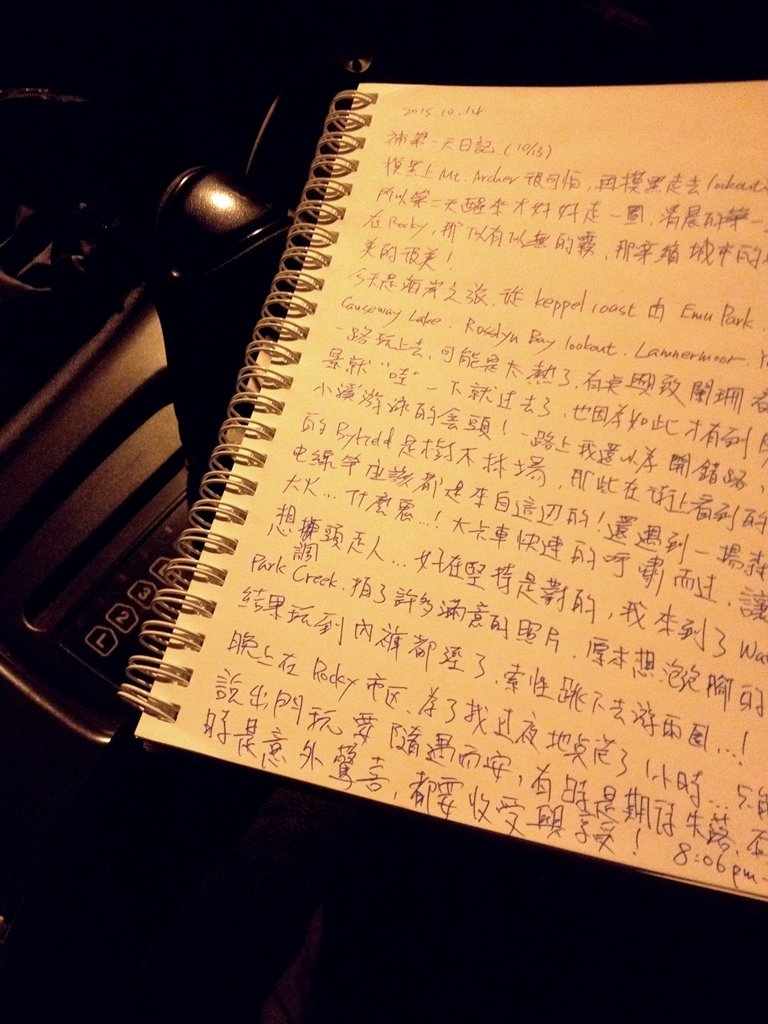 2015.10.14
補第一天日記.(10/13)
摸黑上Mt. Archer很可怕,再摸黑走去lookout
所以第二天醒來才好好走一圈,清晨的第一
在Rocky,那似有似無的霧,那
美的很美!
今天是海岸之旅,從keppel coast 由 Emu Park.
Causeway Lake. Rosslyn Bay lookout. Lammermoor. Y
一路玩上去,可能是太熱了,有點興致闌珊
景就"哇"一下就過去了,也因為如此才有到
小溪游泳的念頭!一路上我還以為開錯路,
的Byfield是樹木林場,那些在街上看到的
電線竿應該都是來自這邊的!還遇到一場
大火...什麼鬼...!大卡車快速的呼嘯而過,讓
想調頭走人...好在堅持是對的,我來到了Wat
Park Creek.拍了許多滿意的照片,原本想泡泡腳的
結果玩到內褲都溼了,索性跳下去游兩圈...!
晚上在Rocky市區,為了找過夜地點花了1小時...只能
說出門玩要隨遇而安,有時是期待失落,不
時是意外驚喜,都要收受與享受!
8:06pm.
L 2 3